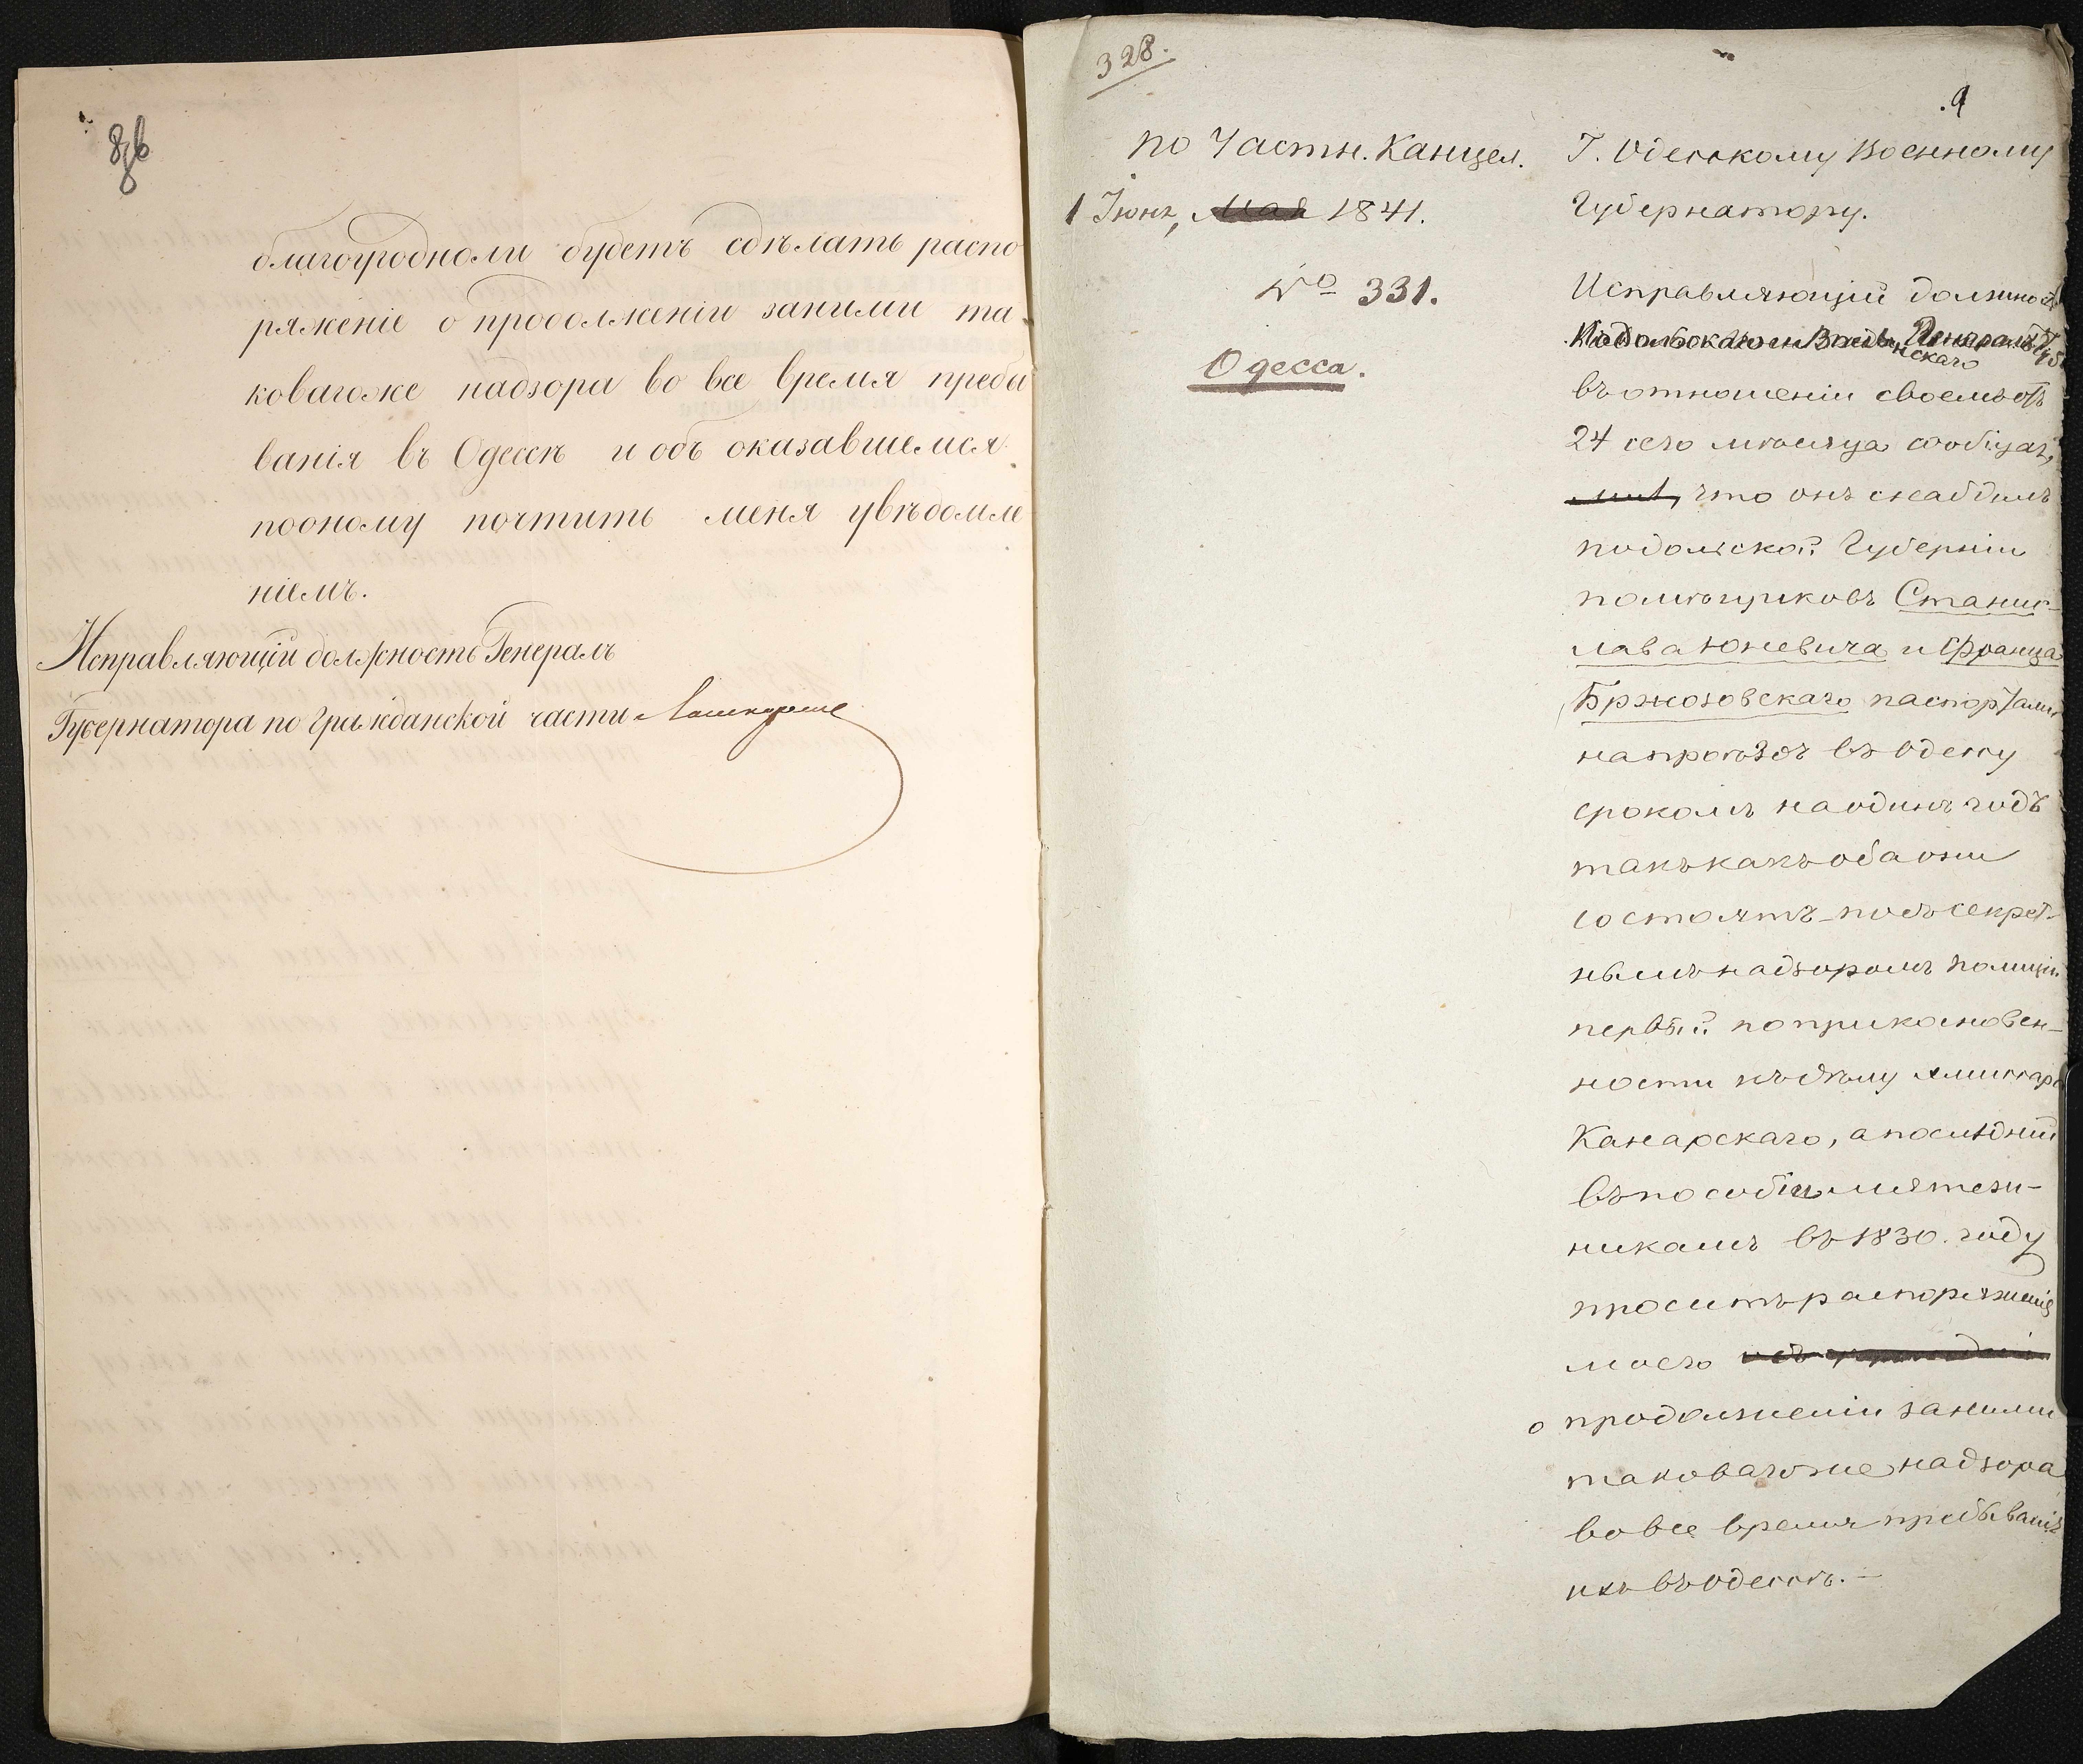 благоугодноли будетъ сдѣлать распо
ряженіе о продолженіи заними та
коваго же надзора во все время пребы
ванія въ Одессѣ и объ оказавшемся
пооному почтить меня увѣдомле
ніемъ.
Исправляющій должность Генералъ
Губернатора по гражданской части
328.
9
по Частн. Канцел.
1 Іюня, Мая 1841.
№ 331.
Одесса.
Г. Одесскому Военному
Губернатору.
Исправляющій должность
въ отношеніи своемъ отъ
24 сего мѣсяца сообщая,
что онъ снабдилъ
Подольской Губерніи
помѣщиковъ Станис-
лава Юневича и Франца
Бржозовскаго паспортами
на проѣздъ въ Одессу
срокомъ на одинъ годъ
такъ какъ оба они
состоятъ подъ секрет-
нымъ надзоромъ полиціи
первый по прикосновен-
ности къ дѣлу эмиссара
Канарскаго, а послѣдній
въ пособіи мятеж-
никамъ въ 1830. году
проситъ распоряженія
моего
о продолженіи заними
таковаго же надзора
во все время пребыванія
ихъ въ Одессѣ.—